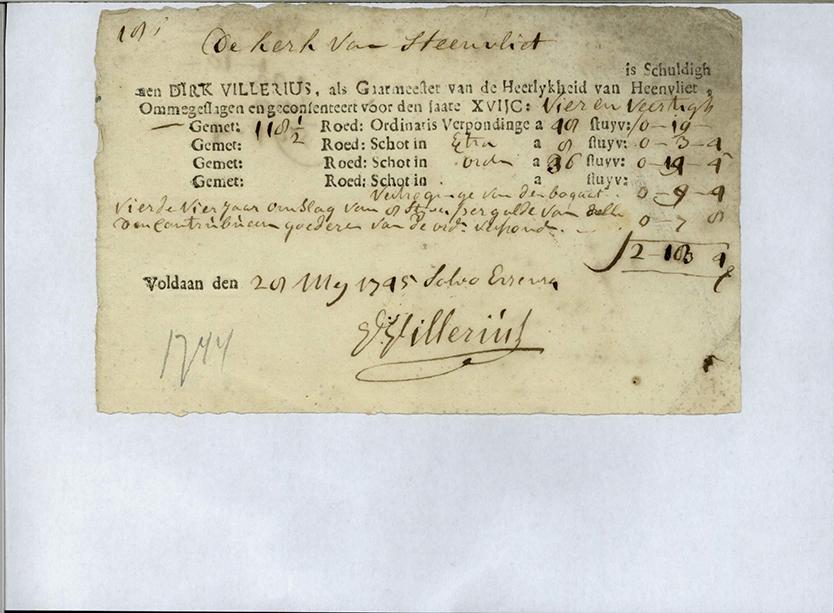 De kerk van Heenvliet
is Schuldigh
aen DIRK VILLERIUS, als Gaarmeester van de Heerlykheid van Heenvliet,
Ommegeslagen en geconsenteert voor den Jaare XVIJC: Vier en Veertigh
— Gemet: 118 1/2 Roed: Ordinaris Verpondinge a 48 stuyv: 0 – 19 –
Gemet: Roed: Schot in Extra a 8 stuyv: 0 – 3 – 4
Gemet: Roed: Schot in ordn a 36 stuyv: 0 – 14 – 4
Gemet: Roed: Schot in a stuyv:
van den bogaat 0 – 4 – 4
Vierde Vier Jaar omslag van 8 per gulde van
goederen van de ord: verpond. 0 – 7 8
2 – 4
Voldaan den 28 Mey 1745 Salvo Errore
D. Villerius
1744